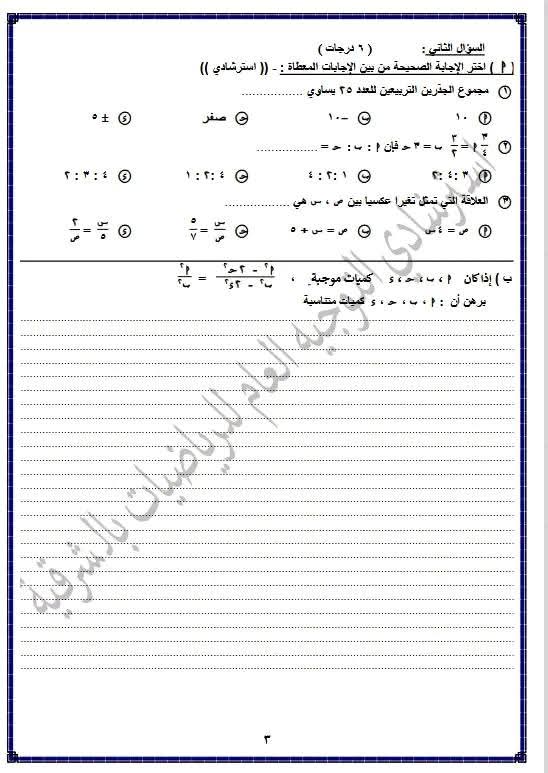 السؤال الثاني : ( ٦ درجات )
( أ ) اختر الإجابة الصحيحة من بين الإجابات المعطاة : - (( استرشادي ))
١ مجموع الجذرين التربيعين للعدد ٢٥ يساوي .................
أ ١٠ ب -١٠ حـ صفر ء ± ٥
٢ ٣/٤ أ = ٣/٢ ب = ٣ حـ فإن أ : ب : حـ = .................
أ ٣ : ٤ : ٢ ب ١ : ٢ : ٤ حـ ٤ : ٢ : ١ ء ٤ : ٣ : ٢
٣ العلاقة التي تمثل تغيرا عكسيا بين ص ، س هي .................
أ ص = ٤ س ب ص = س + ٥ حـ س/ص = ٥/٧ ء س/٥ = ٢/ص
ب ) إذا كان أ ، ب ، حـ ، ء كميات موجبة ، (أ² - ٢ حـ²)/(ب² - ٢ ء²) = أ²/ب²
برهن أن : أ ، ب ، حـ ، ء كميات متناسبة
استرشادي التوجيه العام للرياضيات بالشرقية
٣